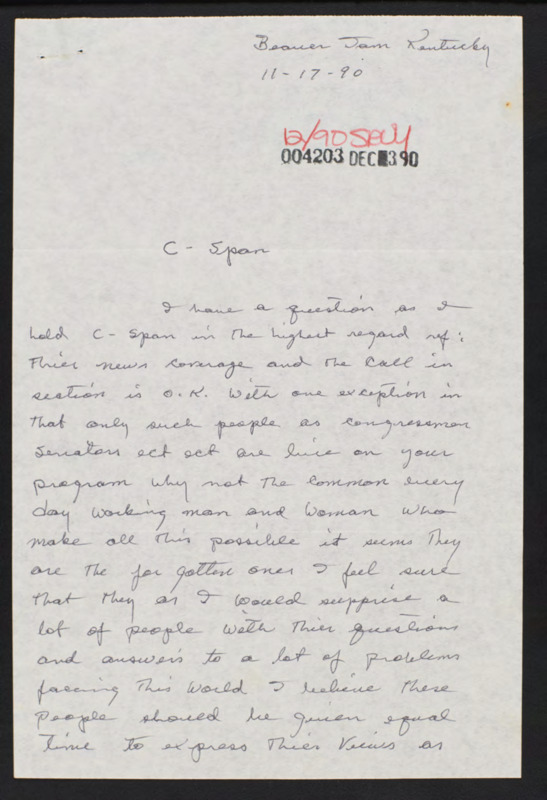 Beaver Dam Kentucky
11-17-90
12/90 SPLY
004203 DEC 390
C - Span
I have a question as I
hold C - Span in the highest regard ref:
Thier news coverage and the Call in
section is O.K. With one exception in
that only such people as congressmen
Senators ect ect are live on your
program Why not The Common every
day Working man and Woman who
make all this possible it seems They
are The for gotten ones I feel sure
that they as I would supprise a
lot of people With Thier questions
and answers to a lot of problems
faceing This World I believe These
People should be given equal
time to express Thier Views as